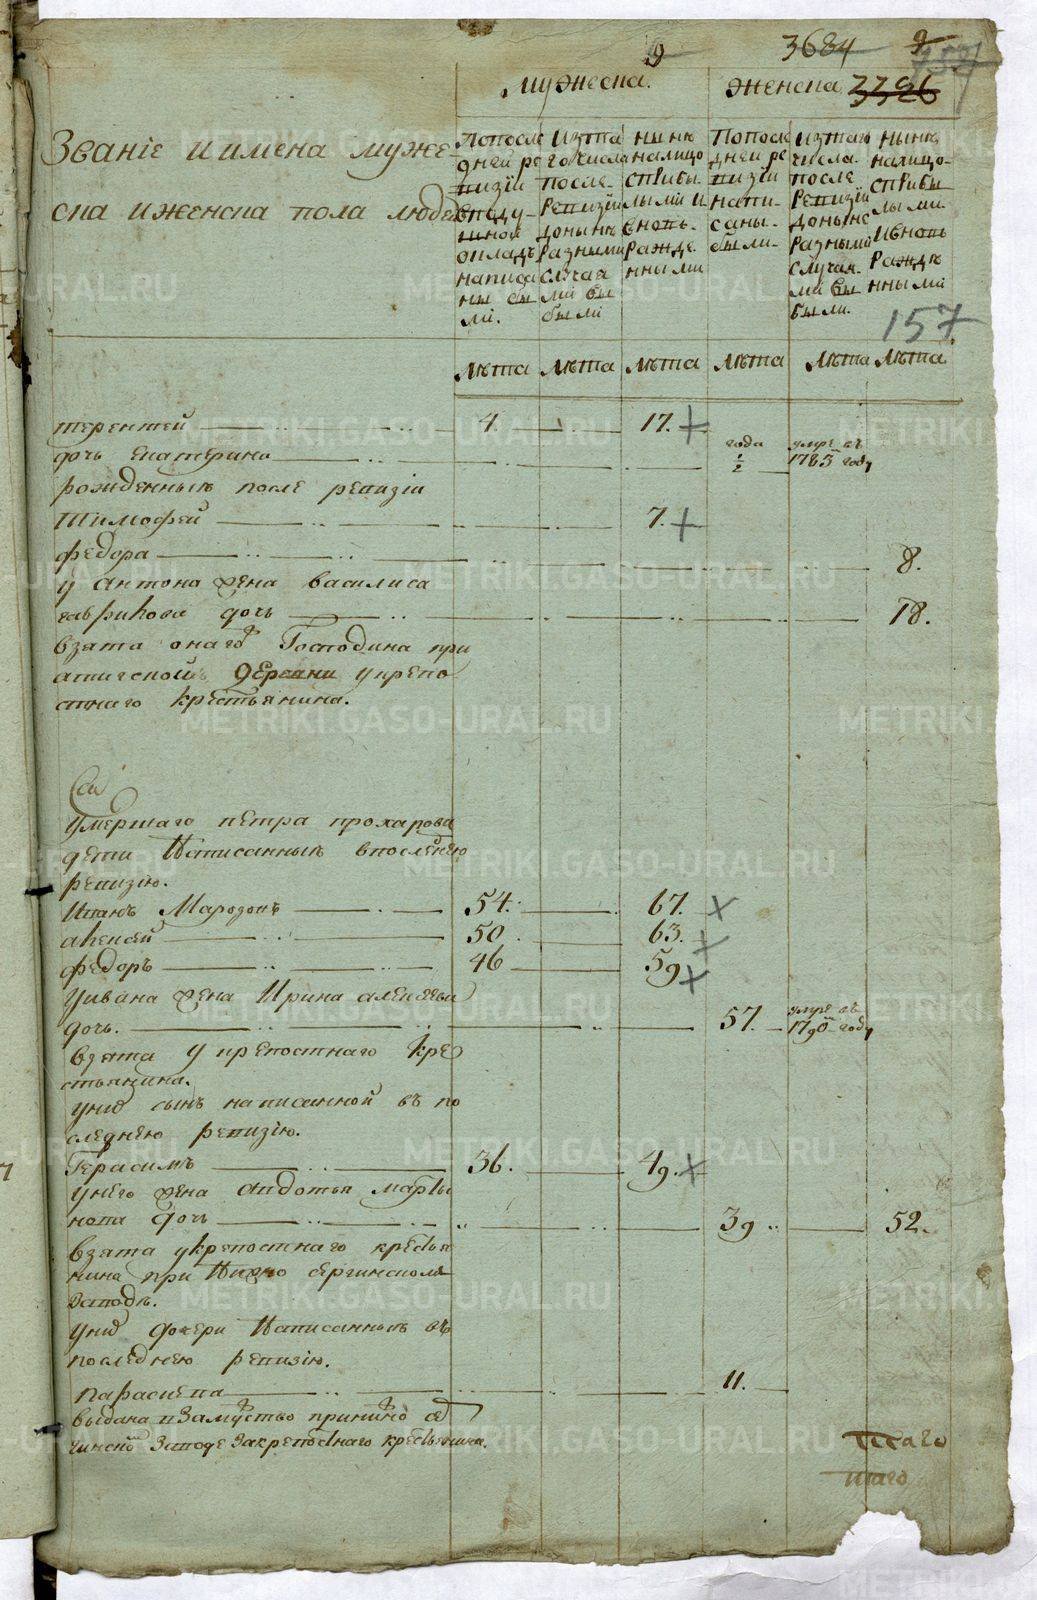 9 3684 9
757
мужеска. женска 3326
Званїе и имена муже-
ска и женска пола людей
По после
дней ре
визїи
в поду-
шной
окладъ
написа
ны бы
лі.
Из та
го числа
после
ревизїи
до нынѣ
разными
случая
ми бы
были
Нынѣ
на лицо
с прибы
лыми и
вновь
рожде
нными
По после
дней ре
визїи
напи-
саны.
были-
Из таго
числа.
после
ревизїи
до ныне
разными
случая-
ми бы
были.
Нынѣ
на лицо-
с прибы
лыми-
и вновь
рождѣ
нными
157
лѣта лѣта лѣта лѣта лѣта лѣта
терентей 4. 17. +
дочь Екатерина года ½ умре въ 1783м году
рожденныя после ревизїи
Тимофей 7. +
федора 8.
у антона жена василиса
гаврилова дочь 18.
взята онаго Господина при
атигской деревни у крепо
стнаго крестьянина.
умершаго петра прохарова
дети Написанныя в последнею
ревизїю.
Иванъ Мародонъ 54. 67. ×
алексей 50 63. ×
федоръ 46 59 ×
У ивана жена Ирина алексеева
дочь. 57. умре въ 1790м году
взята у крепостнаго кре
стьянина.
у них сынъ написанной въ по
следнею ревизїю.
Герасимъ 36. 49. ×
У него жена авдотья марты
нова дочь 39 52.
взята у крепостнаго крестья
нина при Нижно сергинскомъ
заводѣ.
У них дочери Написанныя въ
последнею ревизїю.
парасковья 11.
выдана в замуство при нижно се
гинском заводе за крепостнаго крестьянина.
Итаго
итаго